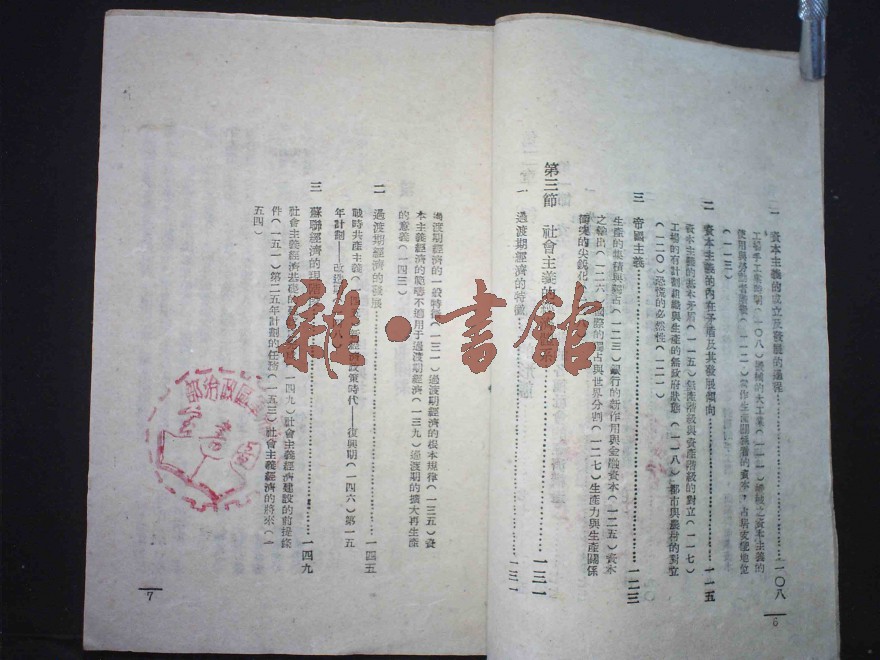 一 資本主義的成立及發展的過程…………一〇八
工場手工業時期(一〇八)機械的大工業(一一一)機械之資本主義的
使用與勞動者運動(一一二)當作生產關係看的資本,占居支配地位
(一一三)
二 資本主義的內在矛盾及其發展傾向…………一一五
資本主義的基本矛盾(一一五)無產階級與資產階級的對立(一一七)
工場的有計劃組織與生產的無政府狀態(一一八)都市與農村的對立
(一二〇)恐慌的必然性(一二一)
三 帝國主義…………一二三
生產的集積與獨占(一二三)銀行的新作用與金融資本(一二五)資本
之輸出(一二六)獨占與世界分割(一二七)生產力與生產關係
衝突的尖銳化
第三節 社會主義的…………一三一
一 過渡期經濟的特徵…………一三一
6
過渡期經濟的一般特徵(一三一)過渡期經濟的根本規律(一三五)資
本主義經濟的範疇不適用于過渡期經濟(一三九)過渡期的擴大再生產
的意義(一四三)
二 過渡期經濟的發展…………一四五
戰時共產主義(一四五)新經濟政策時代——復興期(一四六)第一五
年計劃——改造
三 蘇聯經濟的現階…………一四九
社會主義經濟基礎的一四九)社會主義經濟建設的前提條
件(一五一)第二五年計劃的任務(一五三)社會主義經濟的將來(一
五四)
7
區政治部
圖書
雜·書館